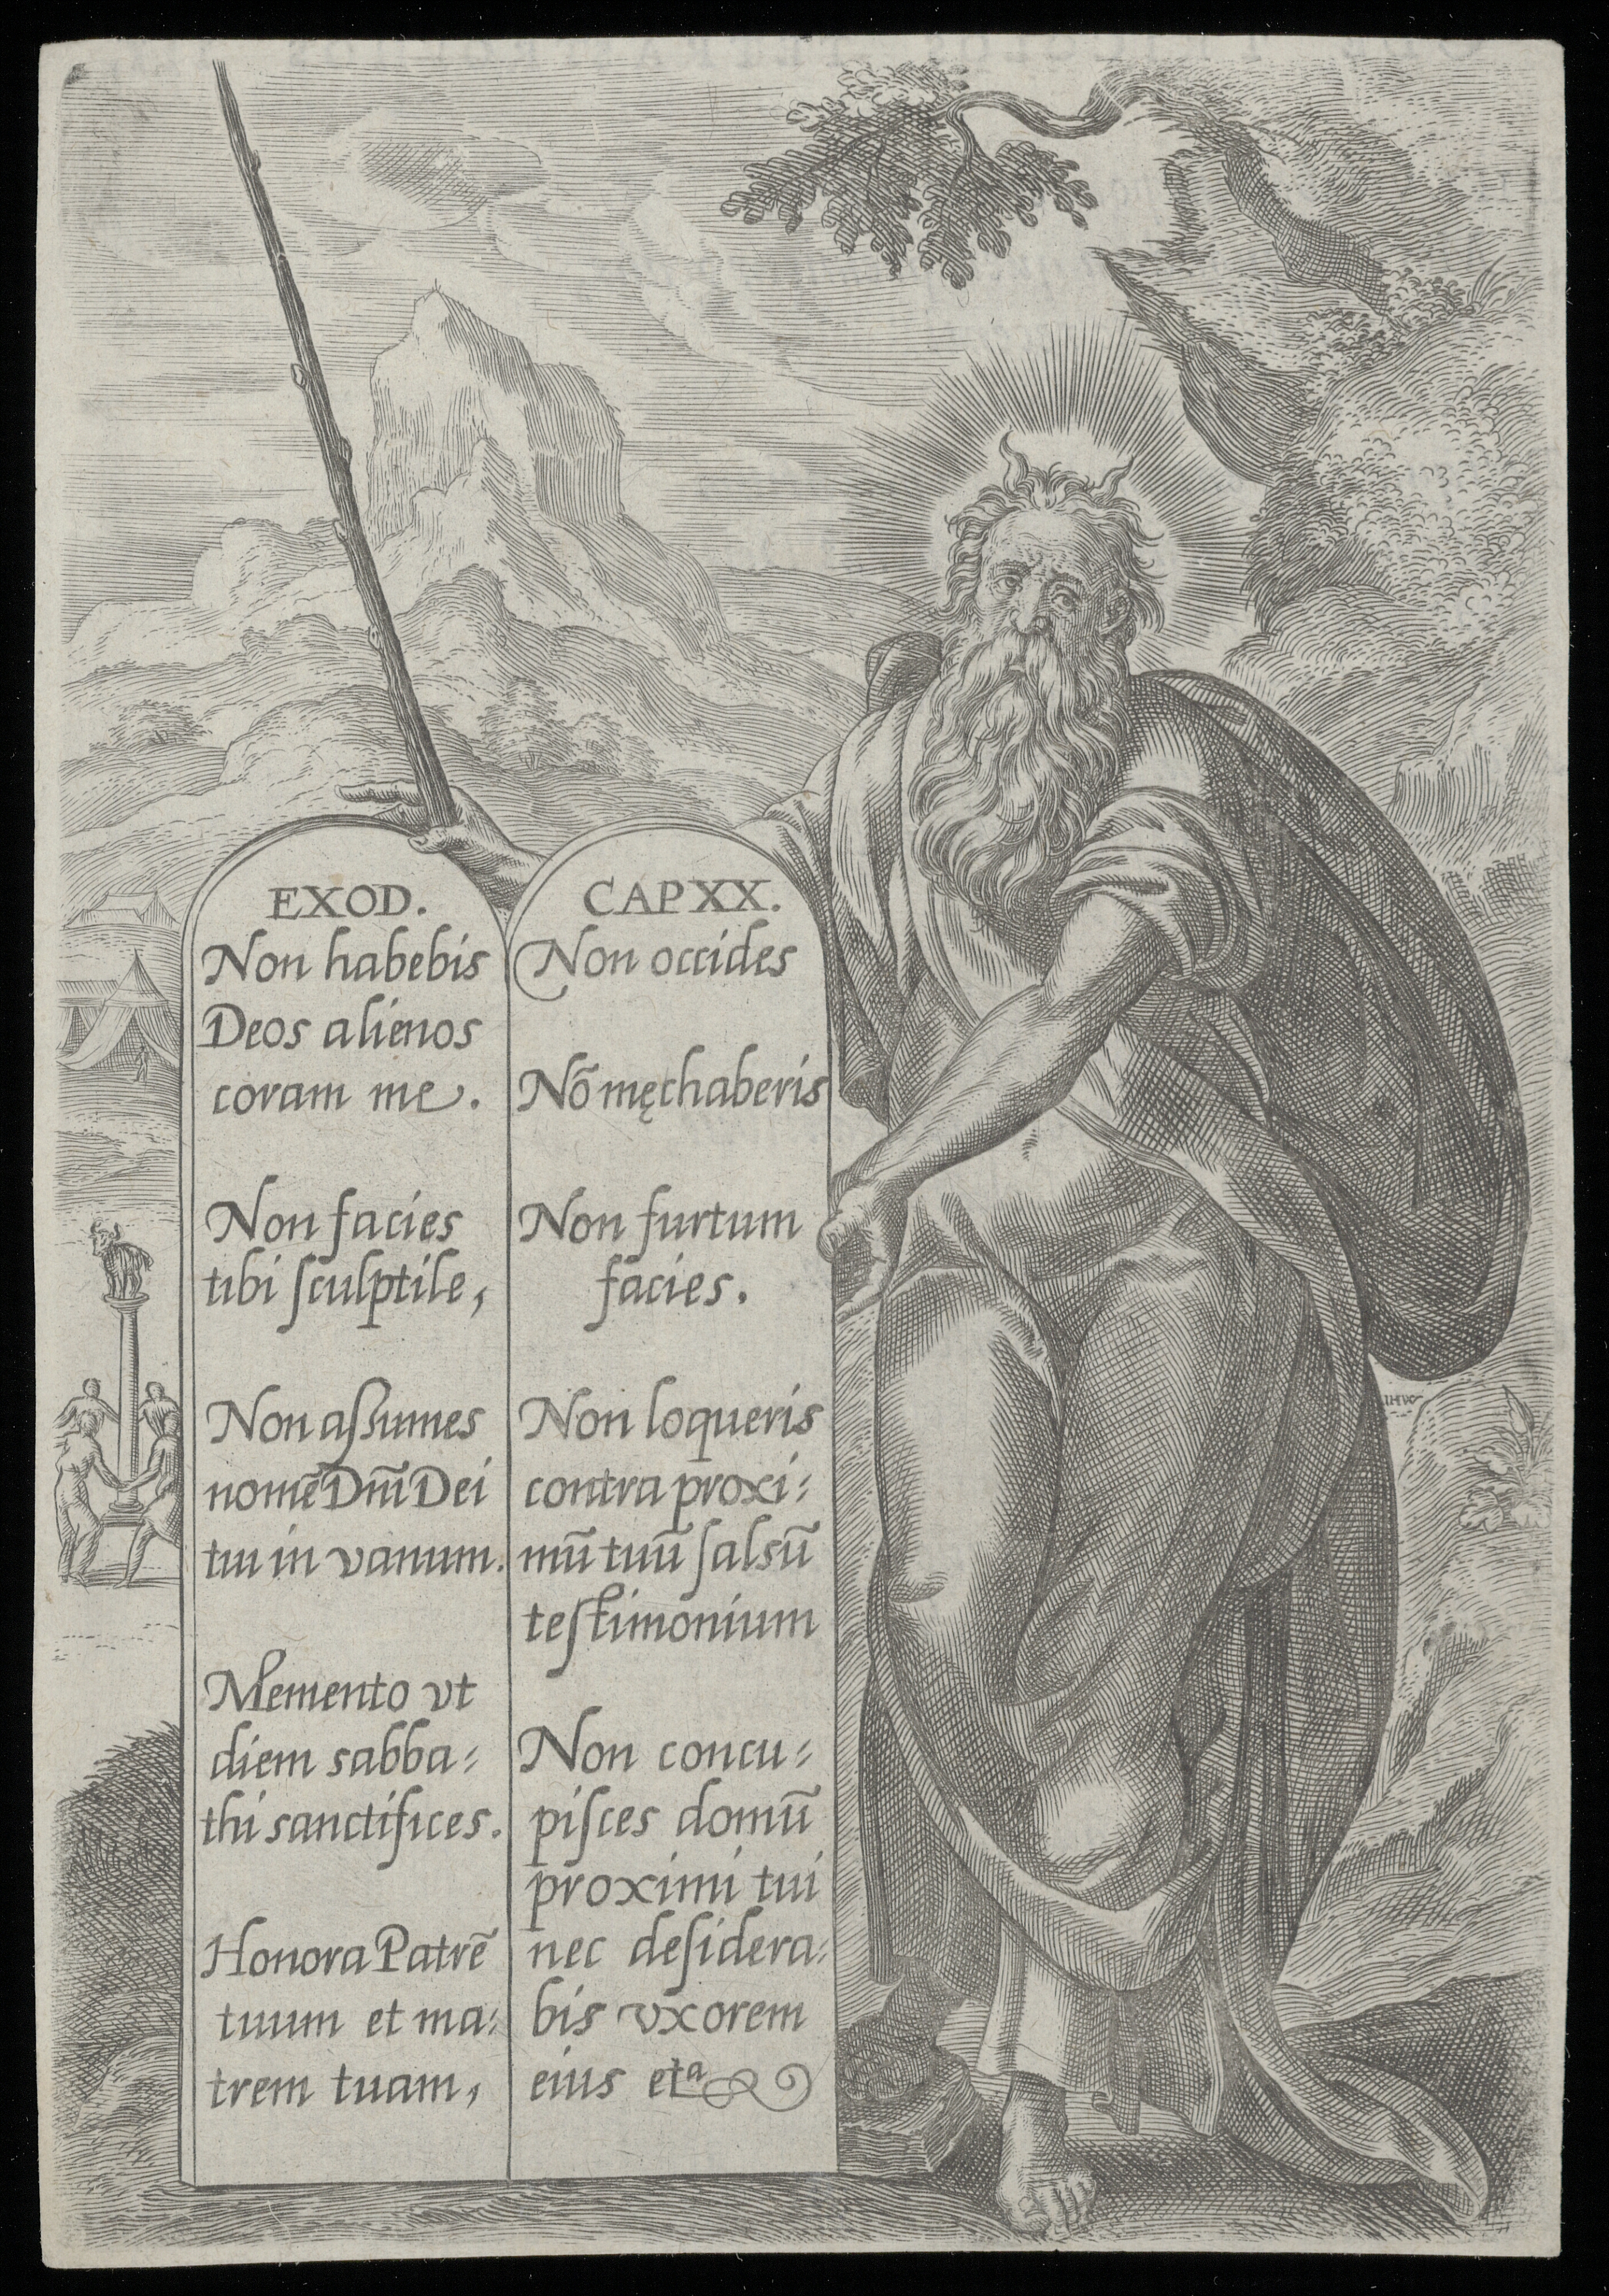 EXOD.
Non habebis
Deos alienos
coram me.
Non facies
tibi ſculptile,
Non aſsumes
nomē Dnī Dei
tui in vanum.
Memento vt
diem sabba=
thi sanctifices.
Honora Patrē
tuum et ma=
trem tuam,
CAP XX.
Non occides
Nō męchaberis
Non furtum
facies.
Non loqueris
contra proxi=
mū tuū ſalsū
teſtimonium
Non concu=
piſces domū
proximi tui
nec deſidera=
bis vxorem
eius etᵃ
IHW